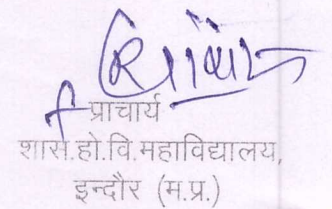 प्राचार्य
शास.हो.वि.महाविद्यालय,
इन्दौर (म.प्र.)